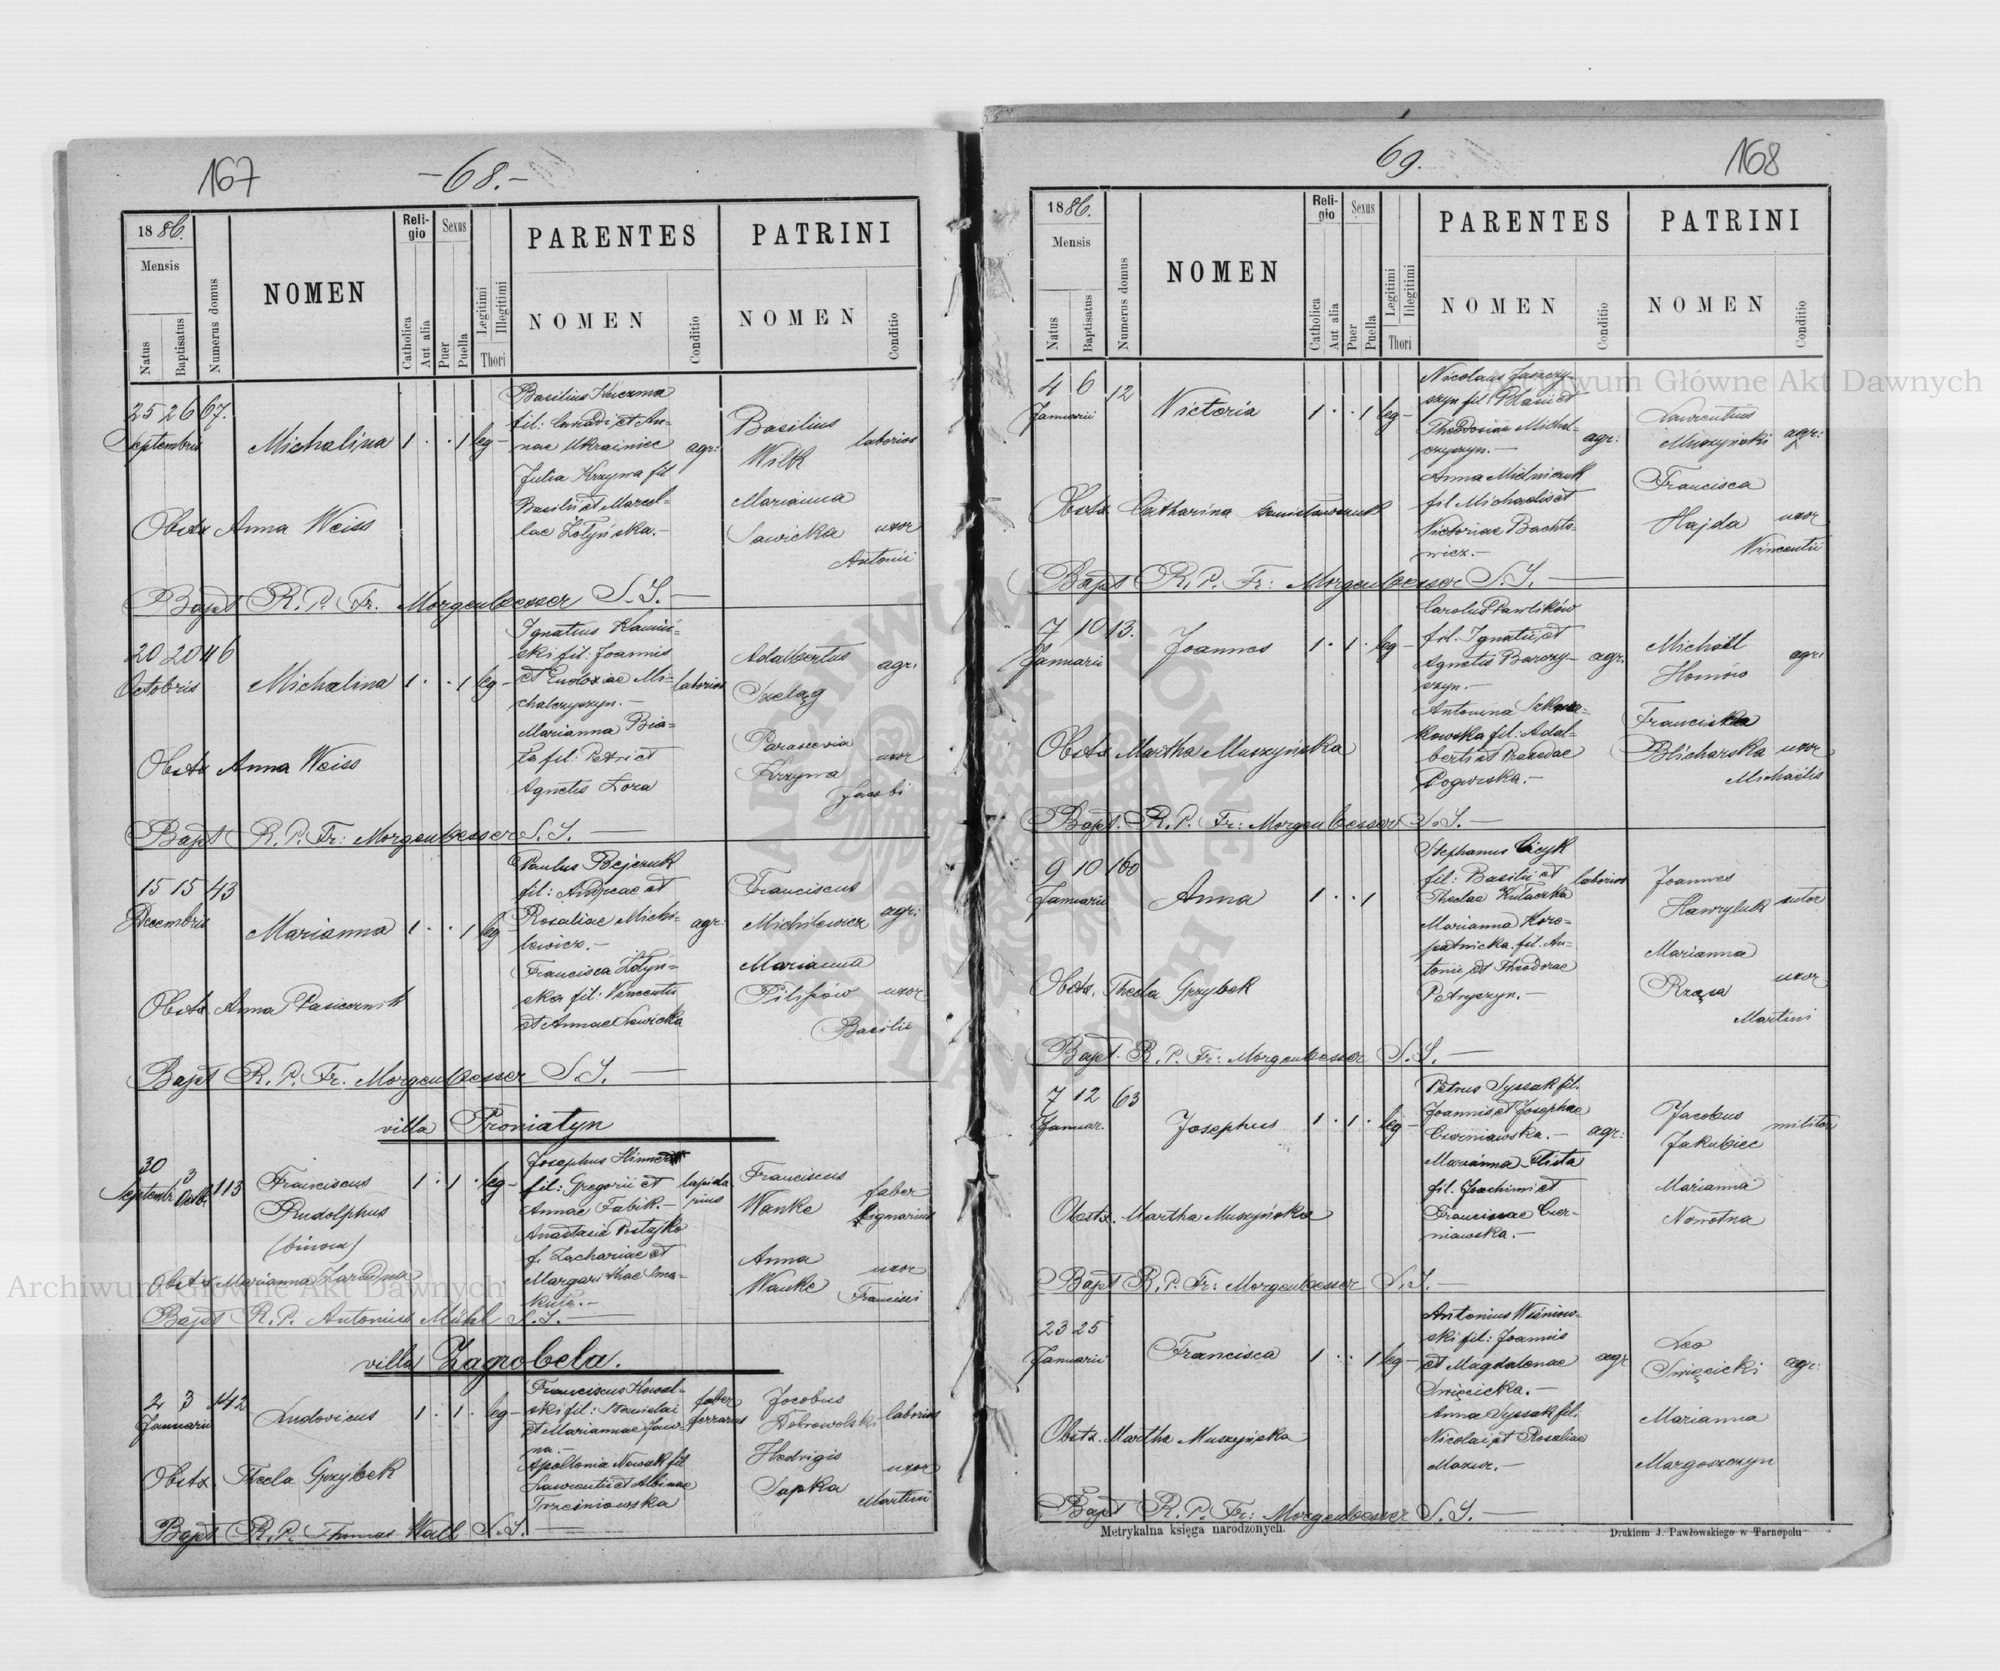 167
-68.-
1886.
Mensis
Natus
Baptisatus
Numerus domus
NOMEN
Religio
Catholica
Aut alia
Sexus
Puer
Puella
Legitimi
Illegitimi
Thori
PARENTES
NOMEN
Conditio
PATRINI
NOMEN
Conditio
25 26 67.
Septembris
Michalina 1 · · 1 leg-
Basilius Kuczma
fil: et An-
nae Ukrainiec
agr:
Julia Krzywa fil
Basilii et Marcel-
lae Żółyńska.-
Basilius
Wilk
laborios
Marianna
Sawicka uxor
Antonii
Obstx Anna Weiss
Bapt R. P. Fr. Morgenbesser S. J. —
20 20 46
Octobris
Michalina 1 · · 1 leg-
Ignatius Kamiń=
ski fil: Joannis
et Eudoxiae Mi-
chalczyszyn.-
laborios
Marianna Bia-
ła fil: Petri et
Agnetis Łoza
Adalbertus agr:
Szeląg
Parascevia
Krzywa uxor
Jacobi
Obstx Anna Weiss
Bapt R. P. Fr: Morgenbesser S. J. —
15 15 43
Decembris
Marianna 1 · · 1 leg
Paulus Bejczuk
fil: Andreae et
Rosaliae Michi-
lewicz.-
agr:
Francisca Żółyn=
ska fil: Vincentii
et Annae Sawicka
Franciscus
Michilewicz agr:
Marianna
Pilipów uxor
Basilii
Obstx. Anna Pasicornik
Bapt R. P. Fr. Morgenbesser S. J. —
villa Proniatyn
30 3 113
Septembr. Octbr
Franciscus
Rudolphus
1 · 1 · leg-
Josephus
fil: Gregorii et
Annae Fabik.-
lapida
rius
Anastasia Postajko
f. Zachariae et
Margarithae Sma-
Franciscus
Wanke
faber
lignarius
Anna
Wanke uxor
Francisci
Obstx Marianna
Bapt R. P. Antonius Mühl S. J. —
villa Zagrobela.
2 3 142
Januarii
Ludovicus 1 · 1 · leg-
Franciscus Kowal-
ski fil: Stanislai
et Mariannae Jaw-
na.-
faber
ferrarius
Apollonia Nowak fil
Laurentii et Albinae
Trześniowska
Jacobus
Dobrowolski laborios
Hedvigis
Sapka uxor
Martini
Obstx. Thecla Grzybek
Bapt R. P. Thomas Wall S. J. —
69.
168
1886.
Mensis
Natus
Baptisatus
Numerus domus
NOMEN
Religio
Catholica
Aut alia
Sexus
Puer
Puella
Legitimi
Illegitimi
Thori
PARENTES
NOMEN
Conditio
PATRINI
NOMEN
Conditio
4 6 12
Januarii
Victoria 1 · · 1 leg-
Nicolaus Jaszczy-
szyn fil Blasii et
Theodosiae Michal-
czyszyn.-
agr:
Anna Mielniczuk
fil Michaelis et
Victoriae Bachta-
wicz.-
Laurentius
Muszyński agr:
Francisca
Hajda uxor
Vincentii
Obstx Catharina
Bapt R. P. Fr: Morgenbesser S. J. —
7 10 13.
Januarii
Joannes 1 · 1 · leg-
Carolus Pawlików
fil. Ignatii et
Agnetis Barczy-
szyn.-
agr.
Antonina
kowska fil: Adal-
berti et Praxedae
Pogorska.-
Michaël
Homów agr:
Francisca
Blicharska uxor
Michaëlis
Obstx Martha Muszyńska
Bapt. R. P. Fr: Morgenbesser S. J. —
9 10 160
Januarii
Anna 1 · · 1
Stephanus Cicyk
fil: Basilii et
Theclae Kułaczka
laborios
Marianna Koro-
patnicka fil. An-
tonii et Theodorae
Petryszyn.-
Joannes
Hawryluk sutor
Marianna
Rząsa uxor
Martini
Obstx. Thecla Grzybek
Bapt. R. P. Fr: Morgenbesser S. J. —
7 12 63
Januar.
Josephus 1 · 1 · leg-
Petrus Syssak fil.
Joannis et Josephae
Czerniawska.-
agr:
Marianna Hlista
fil. Joachimi et
Franciscae Czer-
niawska.-
Jacobus
Jakubiec militar
Marianna
Nowotna
Obstx. Martha Muszyńska
Bapt R. P. Fr: Morgenbesser S. J. —
23 25
Januarii
Francisca 1 · · 1 leg-
Antonius Wiśniow-
ski fil: Joannis
et Magdalenae
Święcicka.-
agr
Anna Syssak fil.
Nicolai et Rosaliae
Mazur.-
Leo
Święcicki agr:
Marianna
Margoszczyn
Obstx. Martha Muszyńska
Bapt R. P. Fr: Morgenbesser S. J. —
Metrykalna księga narodzonych.
Drukiem J. Pawłowskiego w Tarnopolu
Archiwum Główne Akt Dawnych
Archiwum Główne Akt Dawnych
ARCHIWUM GŁÓWNE AKT DAWNYCH